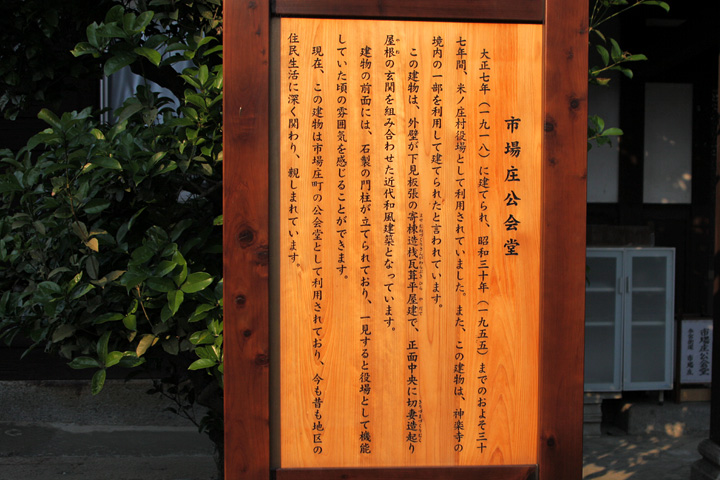 市場庄公会堂
大正七年（一九一八）に建てられ、昭和三十年（一九五五）までのおよそ三十
七年間、米ノ庄村役場として利用されていました。また、この建物は、神楽寺の
境内の一部を利用して建てられたと言われています。
この建物は、外壁が下見板張の寄棟造桟瓦葺平屋建で、正面中央に切妻造起り
屋根の玄関を組み合わせた近代和風建築となっています。
建物の前面には、石製の門柱が立てられており、一見すると役場として機能
していた頃の雰囲気を感じることができます。
現在、この建物は市場庄町の公会堂として利用されており、今も昔も地区の
住民生活に深く関わり、親しまれています。
市場庄公会堂